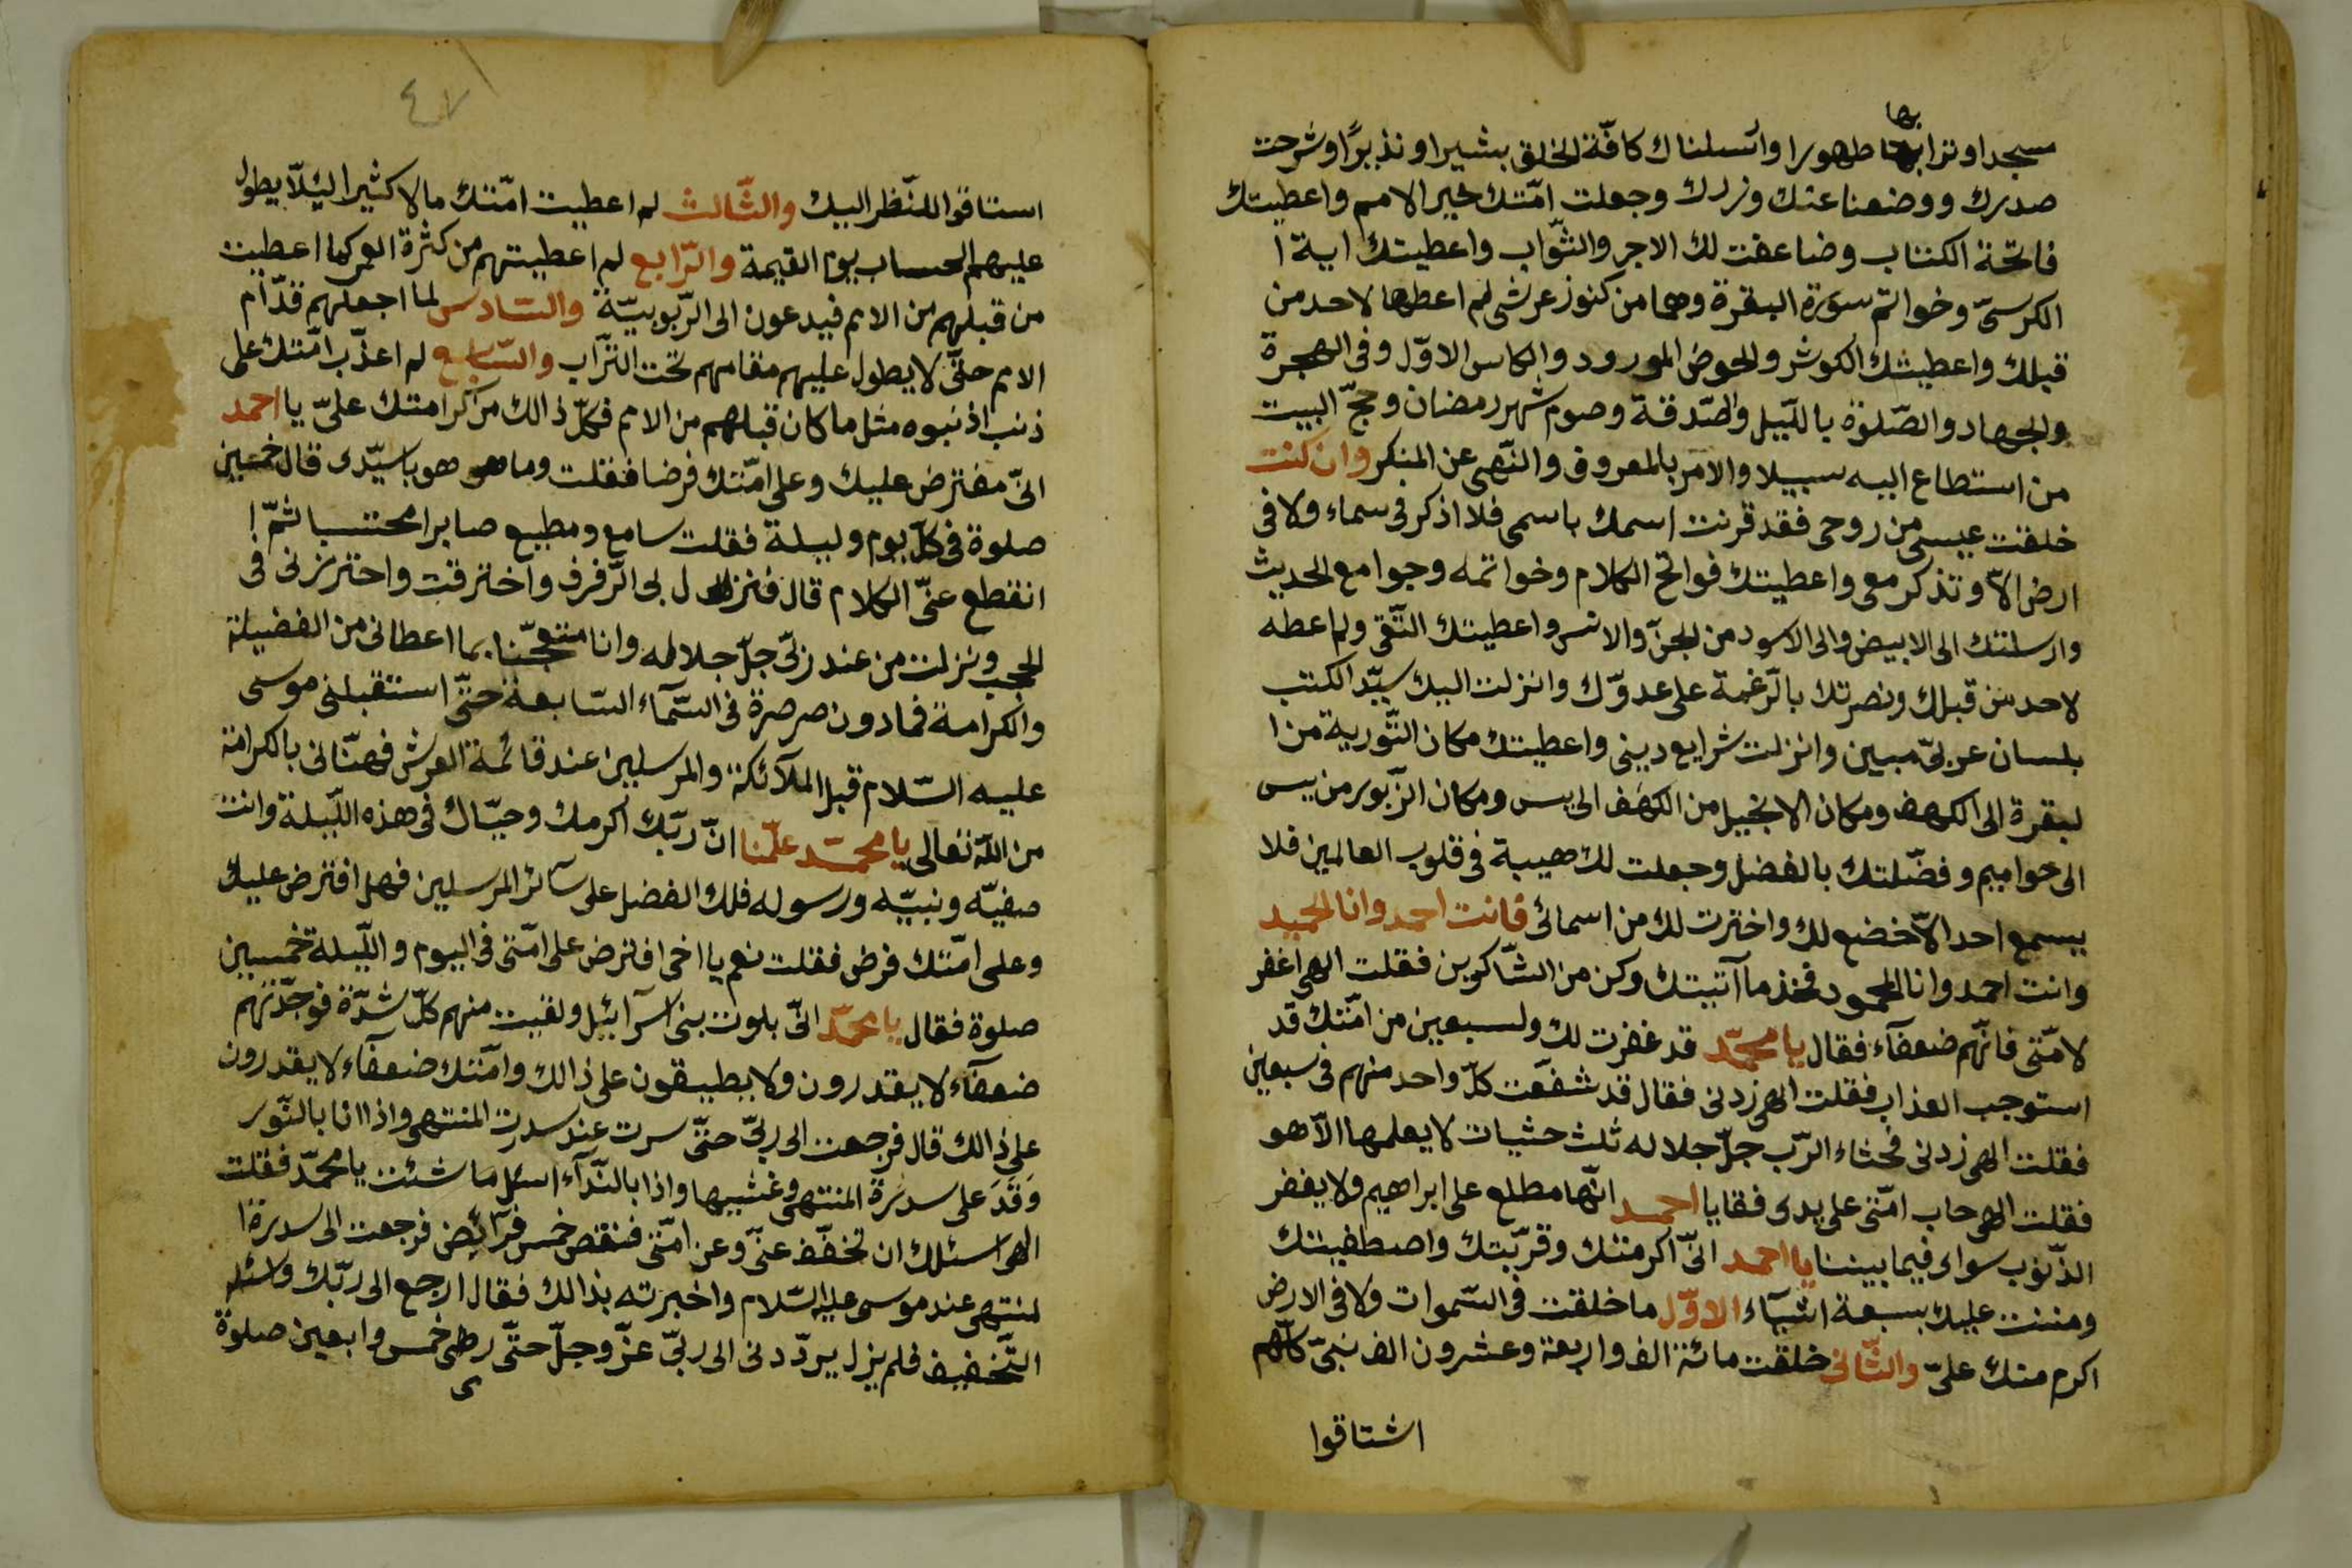 مسجدا وترابها طهورا وارسلناك كافّة الخلق بشيرا ونذيرًا وشرحت
صدرك ووضعنا عنك وزرك وجعلت امّتك خير الامم واعطيتك
فاتحة الكتاب وضاعفت لك الاجر والثّواب واعطيتك اية ا
الكرسىّ وخواتم سورة البقرة وهما من كنوز عرشى لم اعطها لاحد من
قبلك واعطيتك الكوثر والحوض المورود والكاس الاوّل وفى الهجرة
والجهاد والصّلوة بالليّل والصّدقة وصوم شهر رمضان وحجّ البيت
من استطاع اليه سبيلا والامر بالمعروف والنّهى عن المنكر وان كنت
خلقت عيسى من روحى فقد قرنت اسمك باسمى فلا اذكر فى سماء ولا فى
ارض الاّ وتذكر معى واعطيتك فواتح الكلام وخواتمه وجوامع الحديث
وارسلتك الى الابيض والى الاسود من الجنّ والانس واعطيتك التّقى ولم اعطه
لاحد من قبلك ونصرتك بالرّغمة على عدوّك وانزلت اليك سيّد الكتب
بلسان عربىّ مبين وانزلت شرايع دينى واعطيتك مكان التّورية من ا
لبقرة الى الكهف ومكان الانجيل من الكهف الى يس ومكان الزّبور من يس
الى حواميم وفضّلتك بالفضل وجعلت لك هيبة فى قلوب العالمين فلا
يسمع احد الاّ خضع لك واخترت لك من اسمائى فانت احمد وانا الحميد
وانت احمد وانا المحمود فخذ ما آتيتك وكن من الشّاكرين فقلت الهى اغفر
لامّتى فانّهم ضعفآء فقال يا محمّد قد غفرت لك ولسبعين من امّتك قد
استوجب العذاب فقلت الهى زدنى فقال قد شفّعت كلّ واحد منهم فى سبعين
فقلت الهى زدنى فحثاء الرّب جلّ جلاله ثلث حثيات لا يعلمها الاّ هو
فقلت الهى حاب امّتى على يدى فقا يا احمد انّها مطلع على ابراهيم ولا يغفر
الذّنوب سواى فيما بيننا يا احمد انّى اكرمتك وقرّبتك واصطفيتك
ومننت عليك بسبعة اشيآء الاوّل ما خلقت فى السّموات ولا فى الارض
اكرم منك علىّ والثّانى خلقت مائة الف واربعة وعشرون الف نبىّ كلّهم
اشتاقوا
٤٧
استاقوا للنّظر اليك والثّالث لم اعطيت امّتك مالا كثيرا ليلّا يطول
عليهم الحساب يوم القيمة والرّابع لم اعطيتهم من كثرة العمر كما اعطيت
من قبلهم من الامم فيدعون الى الرّبوبيّة والسّادس لما اجعلهم قدّام
الامم حتّى لا يطول عليهم مقامهم تحت التّراب والسّابع لم اعذّب امّتك على
ذنب اذنبوه مثل ما كان قبلهم من الامم فكلّ ذالك من كرامتك علىّ يا احمد
انّى مفترض عليك وعلى امّتك فرضا فقلت وما هو هو يا سيّدى قال خمسين
صلوة فى كلّ يوم وليلة فقلت سامع ومطيع صابرا محتسبا ثمّ ا
انقطع عنّى الكلام قال فنزل بى الرّفرف واخترقت واحترزنى فى
الحجب ونزلت من عند ربّى جلّ جلاله وانا متعجّبا بما اعطانى من الفضيلة
والكرامة فما دون صرصرة فى السّمآء السّابعة حتّى استقبلنى موسى
عليه السّلام قبل الملآئكة والمرسلين عند قائمة العرش فهنّانى بالكرامة
من اللّه تعالى يا محمّد علّمنا انّ ربّك اكرمك وحيّاك فى هذه اللّيلة وانت
صفيّه ونبيّه ورسوله فلك الفضل على سآئر المرسلين فهل افترض عليك
وعلى امّتك فرض فقلت نعم يا اخى افترض على امّتى فى اليوم واللّيلة خمسين
صلوة فقال يا محمّد انّى بلوت بنى اسرآئيل ولقيت منهم كلّ شدّة فوجدّتهم
ضعفآء لا يقدرون ولا يطيقون على ذالك وامّتك ضعفآء لا يقدرون
على ذالك قال فرجعت الى ربّى حتّى سرت عند سدرت المنتهى واذا انا بالنّور
وَقَدَ على سدرة المنتهى وغشيها واذا بالنّدآء اسئل ما شئت يا محمّد فقلت
الهى اسئلك ان تخفّف عنّى وعن امّتى فنقص خمس فرآئض فرجعت الى سدرة ا
لمنتهى عند موسى عليه السّلام واخبرته بذالك فقال ارجع الى ربّك واسئله
التّخفيف فلم يزل يردّدنى الى ربّى عزّ وجلّ حتّى رطى خمس واربعين صلوة